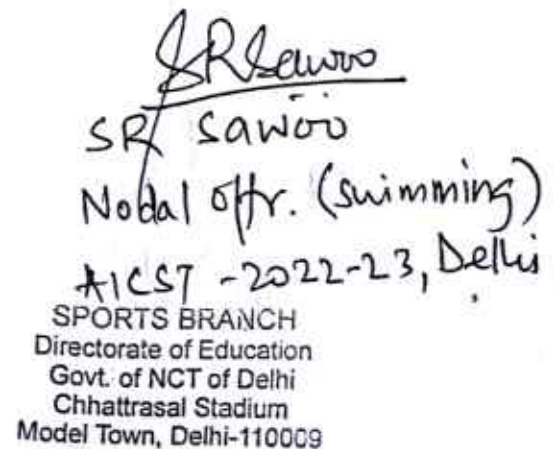 SRSawoo
SR Sawoo
Nodal Offr. (Swimming)
AICST -2022-23, Delhi
SPORTS BRANCH
Directorate of Education
Govt. of NCT of Delhi
Chhattrasal Stadium
Model Town, Delhi-110009